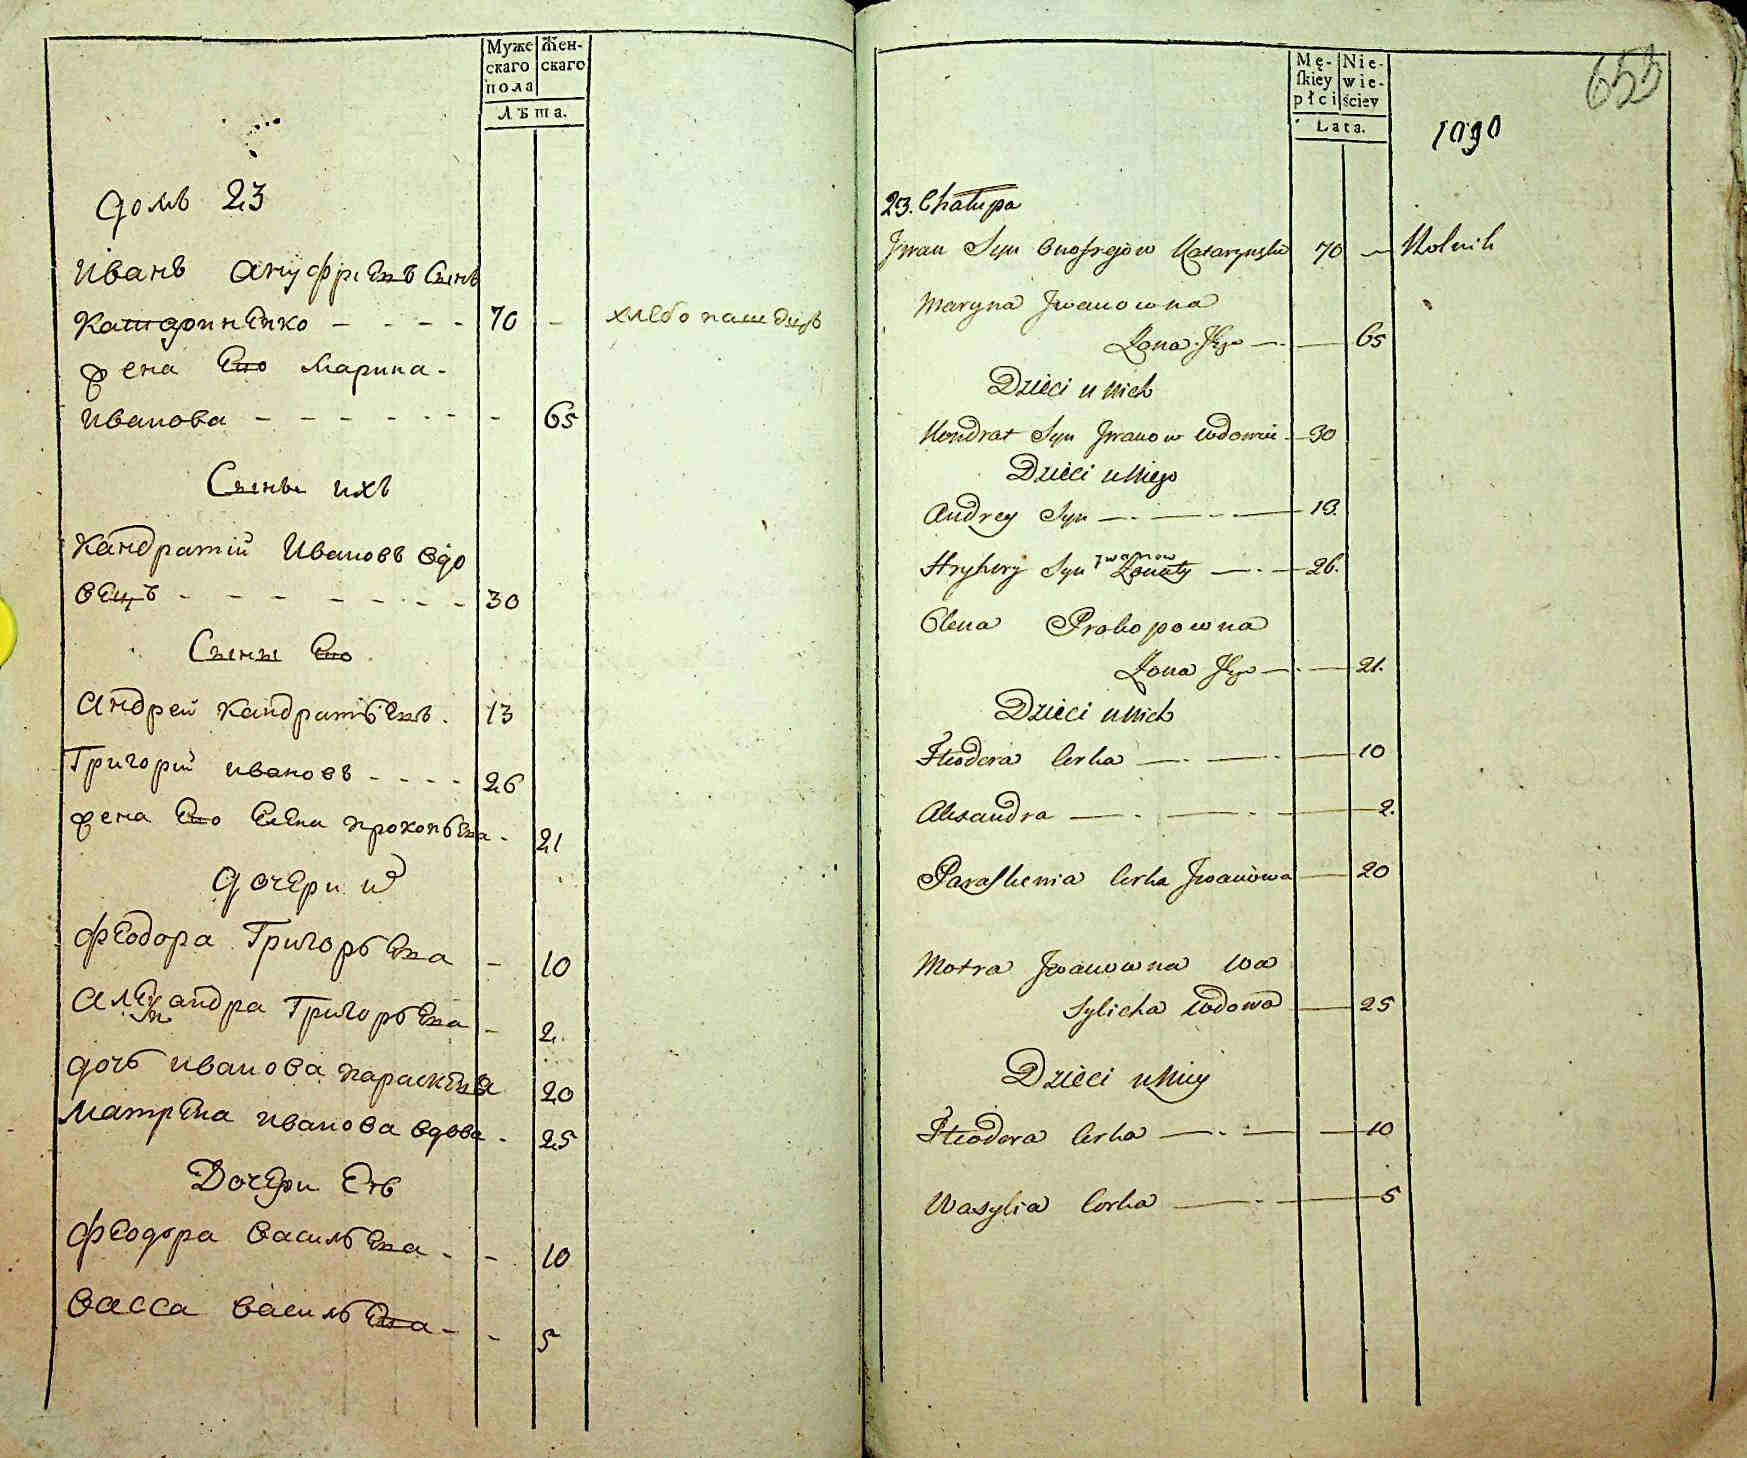 Муже Жен-
скаго скаго
пола
Лѣта.
домъ 23
Иванъ Ануфриевъ Сынъ
Катаринѣнко - - - - 70 - хлебопашецъ
жена Его Марина -
Иванова - - - - - - - 65
Сыны ихъ
Кандратий Ивановъ вдо
вецъ - - - - - - - 30
Сыны Его
Андрей Кандратьевъ. 13
Григорий Ивановъ - - - - 26
жена Его Елена Прокопьева - 21
Дочери их
Феодора Григорьева - 10
Александра Григорьева - 2.
дочь Иванова Параскева 20
Матрена Иванова вдова - 25
Дочери Еѣ
Феодора Васильева - - 10
Васса Васильева - - 5
Mę- Nie-
skiey wie-
płci ściey
Lata.
653
1090
23. Chałupa
Jwan Syn Onofrejow Kataryńsko 70 — Rolnik
Maryna Jwanowna
Żona Jego — 65
Dzieci u Nich
Kondrat Syn Jwanow wdowiec — 30
Dzieci u Niego
Andrey Syn — 13.
Jwanow
Hryhory Syn Żonaty — 26.
Olena Prokopowna
Żona Jego — 21.
Dzieci u Nich
Fteodora Corka — 10
Alexandra — 2.
Paraskewia Corka Jwanowa — 20
Motra Jwanowna Wa
sylicha wdowa — 25
Dzieci u Niey
Fteodora Corka — 10
Wasylia Corka — 5